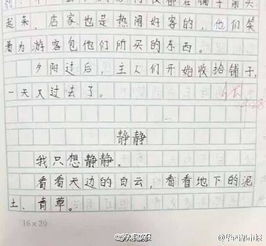 起来，店家也是热闹好客的，他们笑
着为游客包他们所买的东西。
夕阳过后，主人们开始收拾铺子，
一天又过去了。
静静
我只想静静，
看看天边的白云，看看地下的泥
土、青草。
16×20